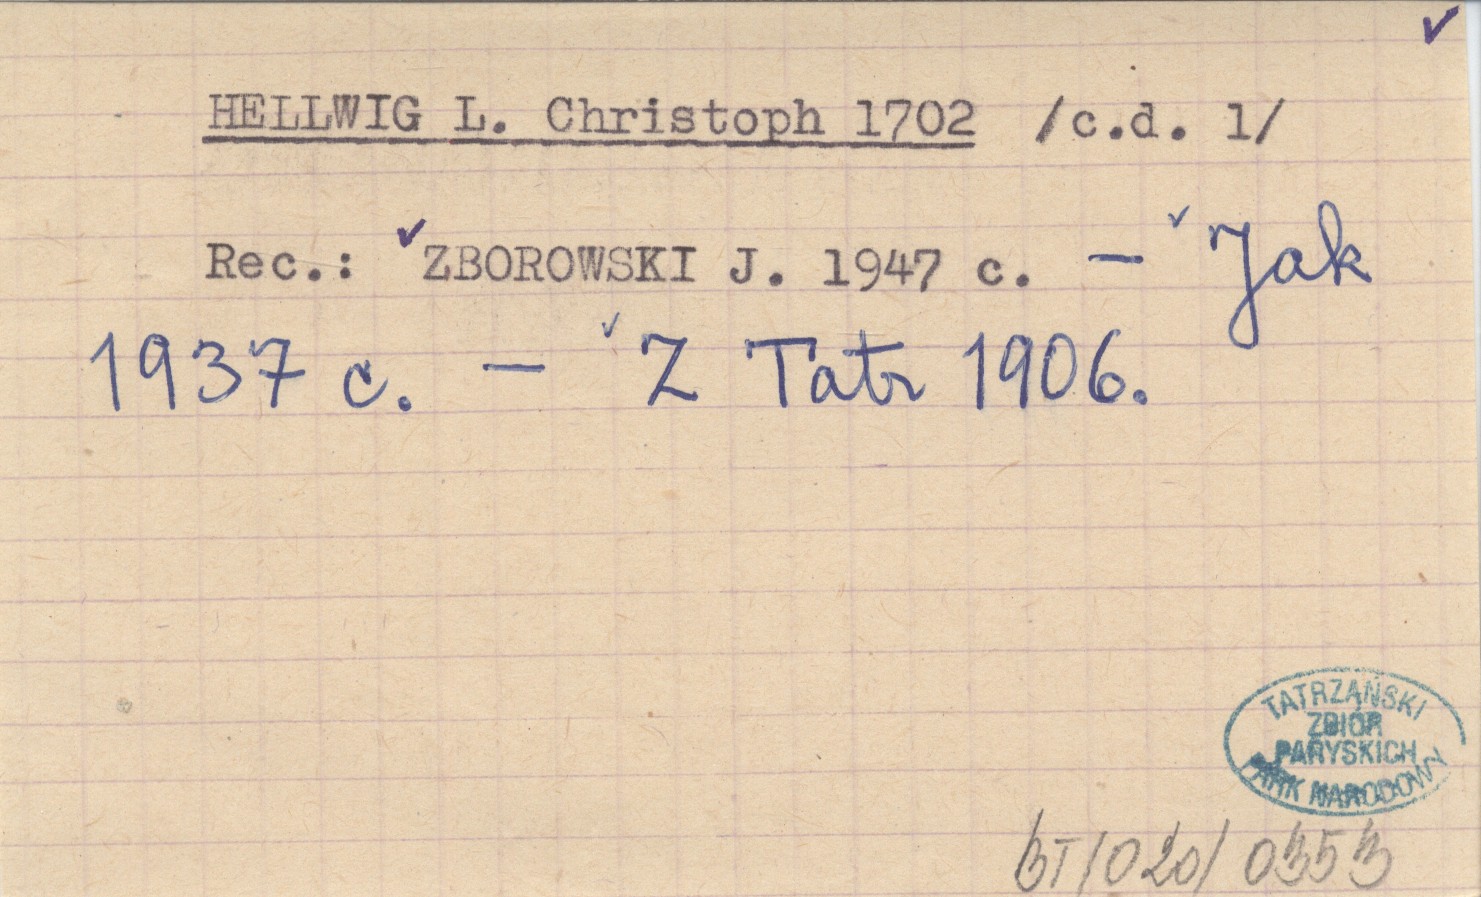 HELLWIG L. Christoph 1702 /c.d. 1/
Rec.: ZBOROWSKI J. 1947 c. – Jak
1937 c. – Z Tatr 1906.
TATRZAŃSKI
ZBIÓR
PARYSKICH
PARK NARODOWY
BT/020/0353